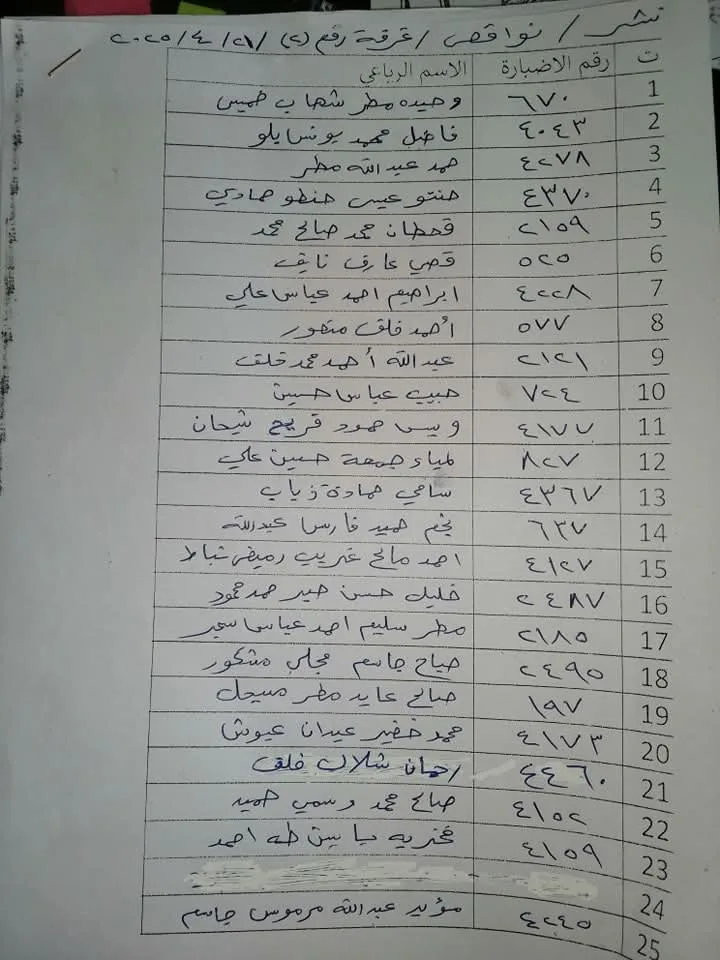 نشر / نواقص / غرفة رقم (٢) ٢١/ ٤/ ٢٠٢٥
ت رقم الاضبارة الاسم الرباعي
1 ٦٧٠ وحيده مطر شهاب خميس
2 ٤٠٤٣ فاضل محمد يونس
3 ٤٢٧٨ حمد عبد الله مطر
4 ٤٣٧٠ حنتو عيسى حنطو حمادي
5 ٢١٥٩ قحطان محمد صالح محمد
6 ٥٢٥ قصي عارف نايف
7 ٤٢٢٨ ابراهيم احمد عباس علي
8 ٥٧٧ أحمد فلق منصور
9 ٢١٢١ عبد الله أحمد محمد
10 ٧٢٤ حبيب عباس حسين
11 ٤١٧٧ ويس حمود فريح شيحان
12 ٨٢٧ لمياء جمعة حسين علي
13 ٤٣٦٧ سامي حمادة ذياب
14 ٦٣٧ نجم حميد فارس عبدالله
15 ٤١٢٧ احمد مالح غريب رميض شباط
16 ٢٤٨٧ خليل حسن حمد محمود
17 ٢١٨٥ مطر سليم احمد عباس
18 ٢٤٩٥ صباح جاسم مجلي مشكور
19 ١٩٧ صالح عايد مطر
20 ٤١٧٣ محمد خضير عيدان عيوش
21 ٤٤٦٠ رحمان شلال فلق
22 ٤١٥٢ صالح محمد وسمي حميد
23 ٤١٥٩ فخريه ياسين طه احمد
24
25 ٤٢٤٥ مؤيد عبدالله مرموس جاسم